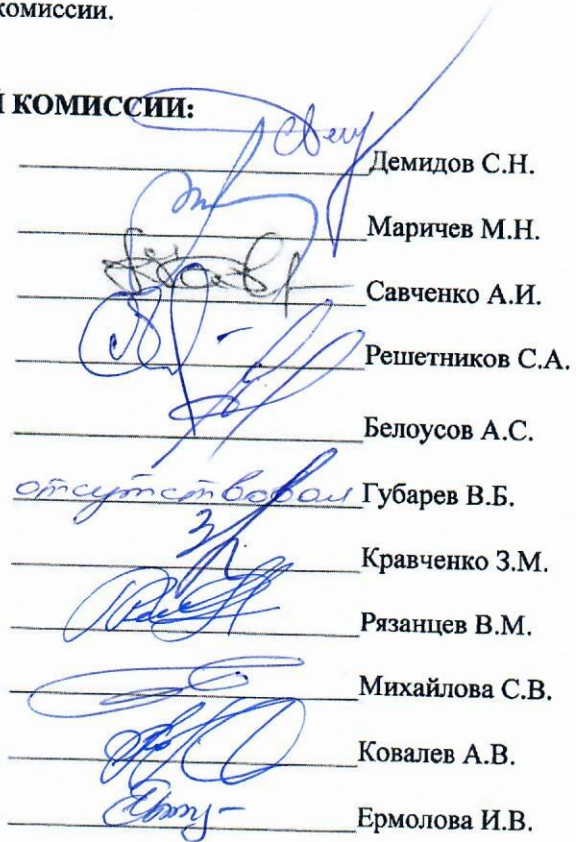 комиссии.
КОМИССИИ:
Демидов С.Н.
Маричев М.Н.
Савченко А.И.
Решетников С.А.
Белоусов А.С.
отсутствовал Губарев В.Б.
Кравченко З.М.
Рязанцев В.М.
Михайлова С.В.
Ковалев А.В.
Ермолова И.В.